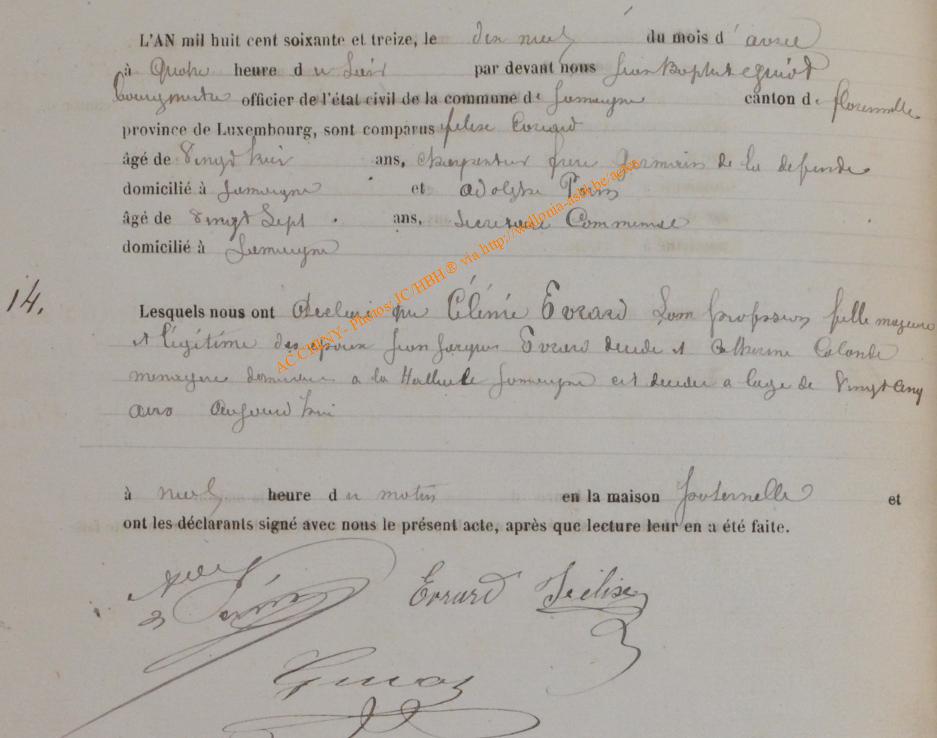 L'AN mil huit cent soixante et treize, le dix neuf du mois d'avril
à Quatre heure du Soir par devant nous Jean Baptiste guiot
bourgmestre officier de l'état civil de la commune de Jamoigne canton de florenville
province de Luxembourg, sont comparus felix Evrard
âgé de Vingt huit ans, charpentier frere Germain de la defunte
domicilié à Jamoigne et adolphe
âgé de Vingt Sept ans, Secretaire Communal
domicilié à Jamoigne
14.
Lesquels nous ont declaré que Célénie Evrard Sans profession fille majeure
et légitime des epoux Jean Jacques Evrard decede et Catherine
menagere domiciliée a la Jamoigne est decedee a l'age de Vingt Cinq
ans aujourd'hui
à neuf heure du matin en la maison paternelle et
ont les déclarants signé avec nous le présent acte, après que lecture leur en a été faite.
Evrard Felix
ACCIGNY- Photos JC/HBH® via http://wallonia-asbl.be.ages